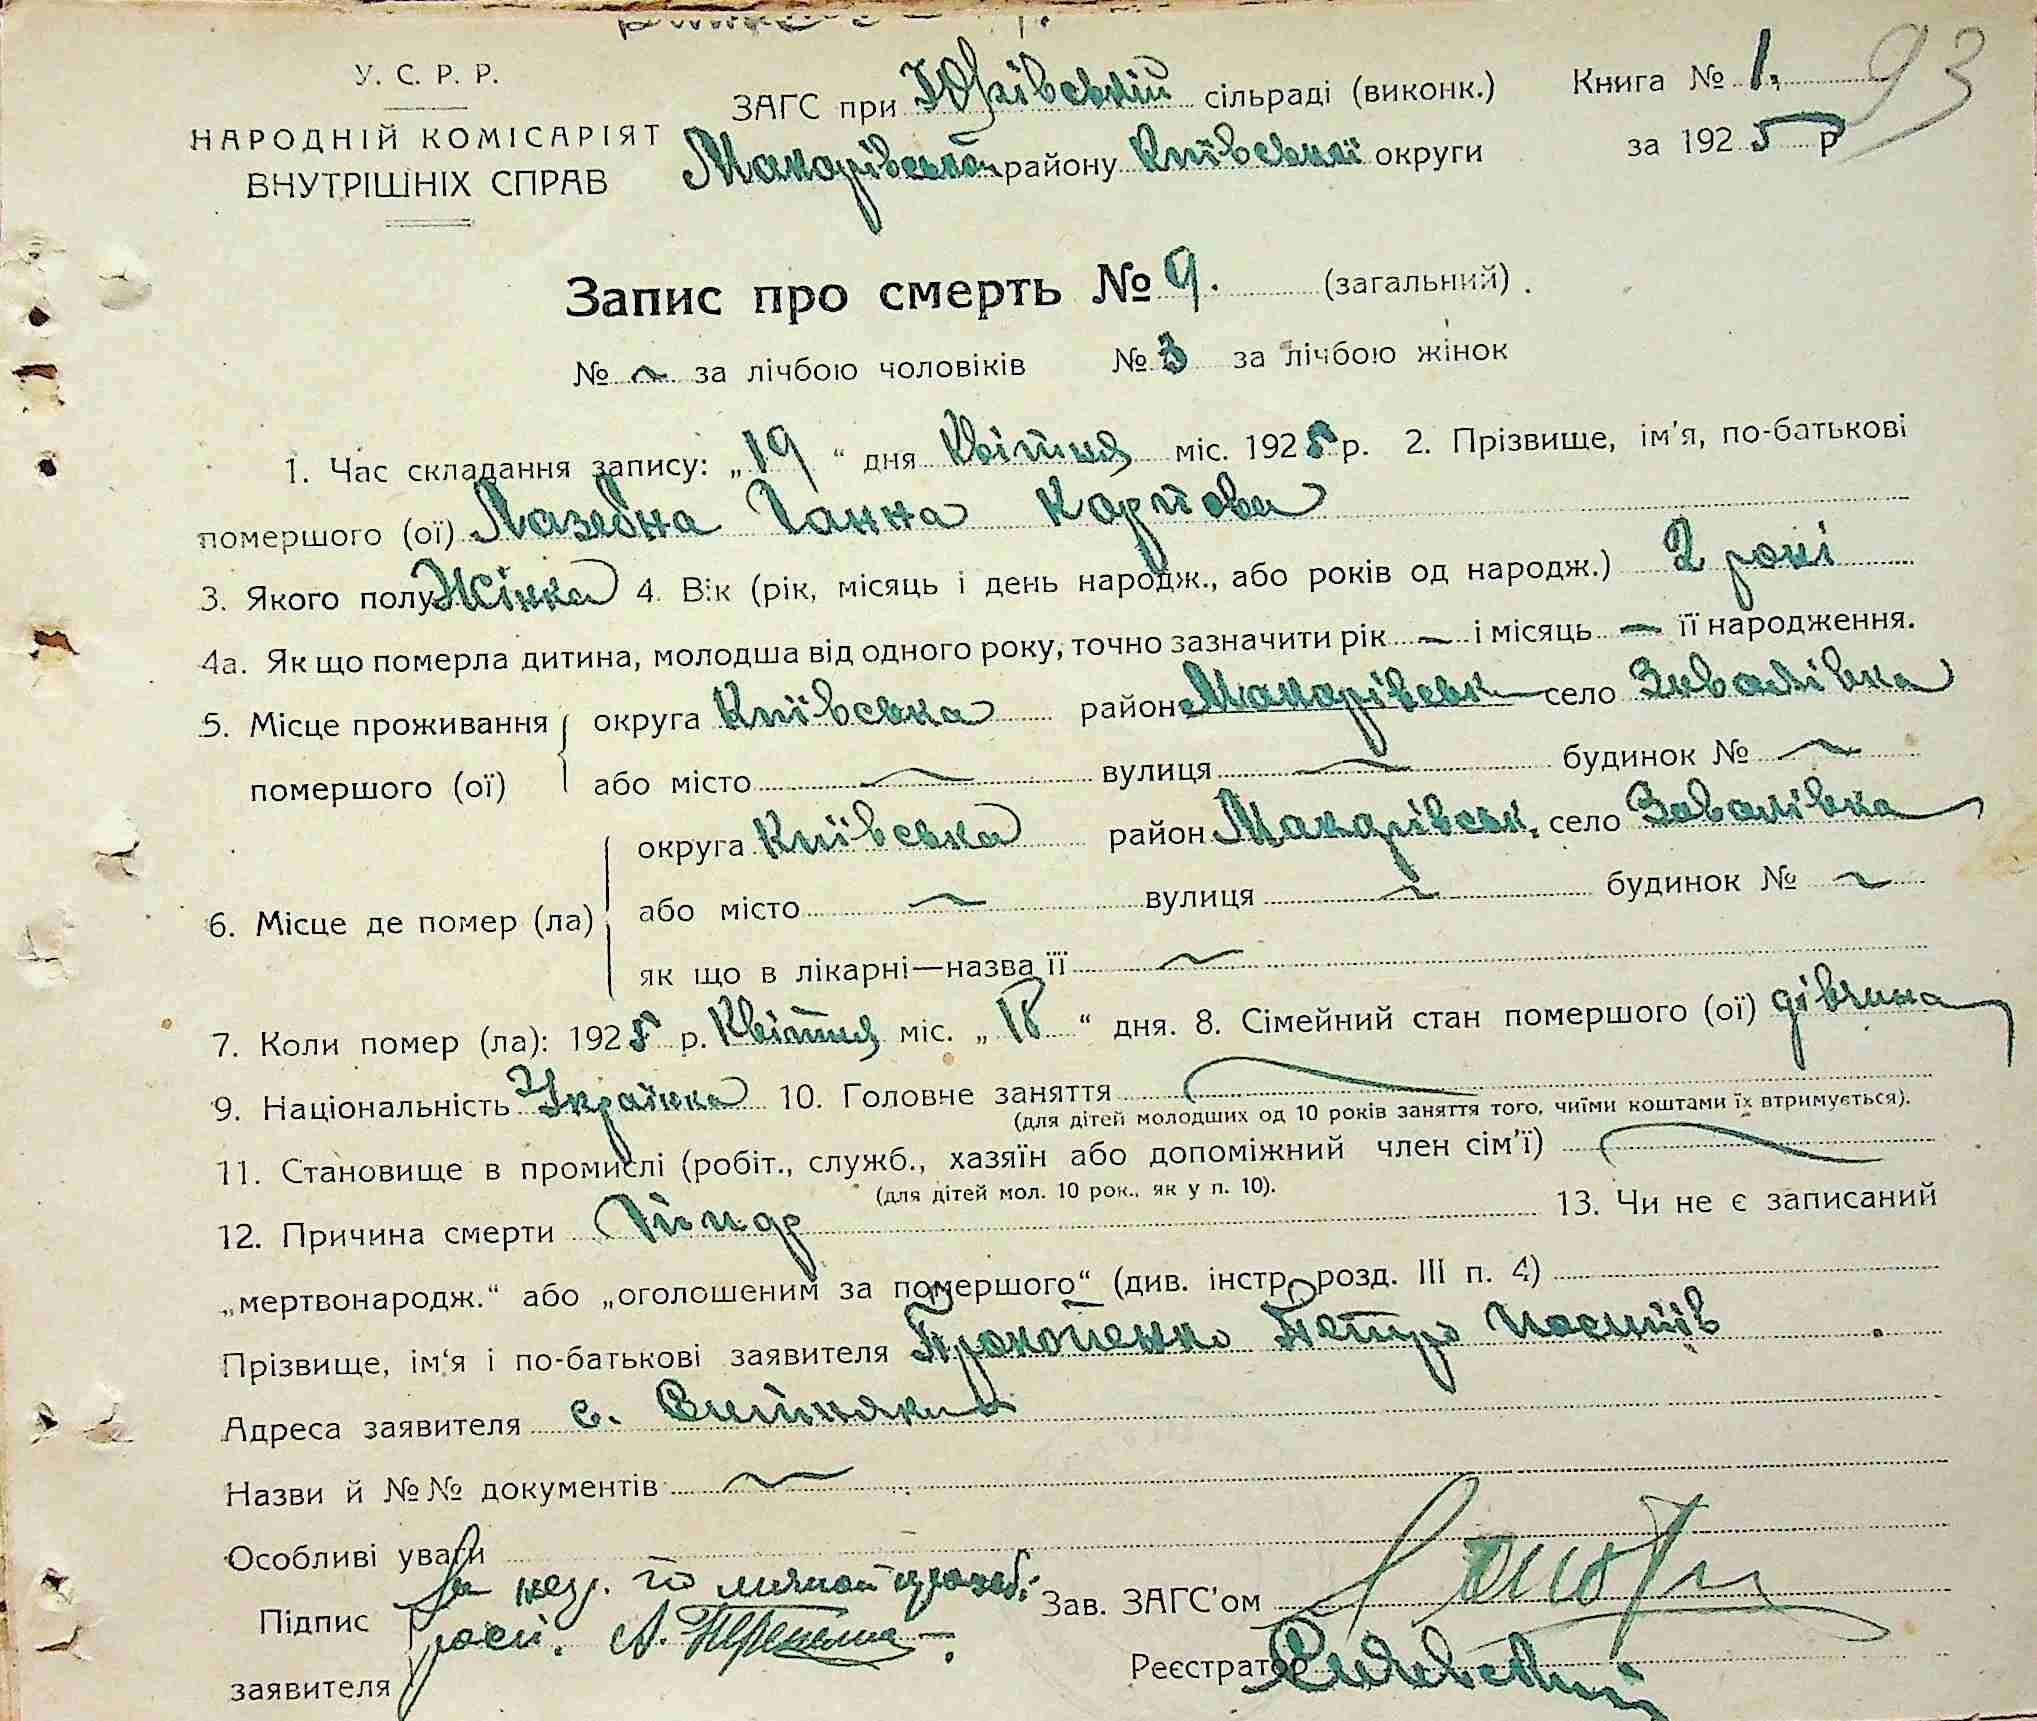 У. С. Р. Р.
НАРОДНІЙ КОМІСАРІЯТ
ВНУТРІШНІХ СПРАВ
ЗАГС при Юрівській сільраді (виконк.)
Макарівськ. району Київської округи
Книга № 1. 93
за 1925 р
Запис про смерть № 9. (загальний).
№ ~ за лічбою чоловіків № 3 за лічбою жінок
1. Час складання запису: „19“ дня Квітня міс. 1925 р. 2. Прізвище, ім'я, по-батькові
помершого (ої) Лазебна Ганна Карпова
3. Якого полу Жінка 4. Вік (рік, місяць і день народж., або років од народж.) 2 рокі
4а. Як що померла дитина, молодша від одного року, точно зазначити рік — і місяць — її народження.
5. Місце проживання помершого (ої) округа Київська район Макарівськ село Завалівка
або місто — вулиця — будинок № —
6. Місце де помер (ла) округа Київська район Макарівськ. село Завалівка
або місто — вулиця — будинок № ~
як що в лікарні—назва її ~
7. Коли помер (ла): 1925 р. Квітня міс. „18“ дня. 8. Сімейний стан помершого (ої) дівчина
9. Національність Українка 10. Головне заняття
(для дітей молодших од 10 років заняття того, чиїми коштами їх втримується).
11. Становище в промислі (робіт., служб., хазяїн або допоміжний член сім'ї)
(для дітей мол. 10 рок., як у п. 10).
12. Причина смерти 13. Чи не є записаний
„мертвонародж.“ або „оголошеним за помершого“ (див. інстр. розд. III п. 4)
Прізвище, ім'я і по-батькові заявителя Прокопенко Петро
Адреса заявителя с.
Назви й №№ документів ~
Особливі уваги
Підпис заявителя За по личной
А. Перепелица
Зав. ЗАГС'ом
Реєстратор